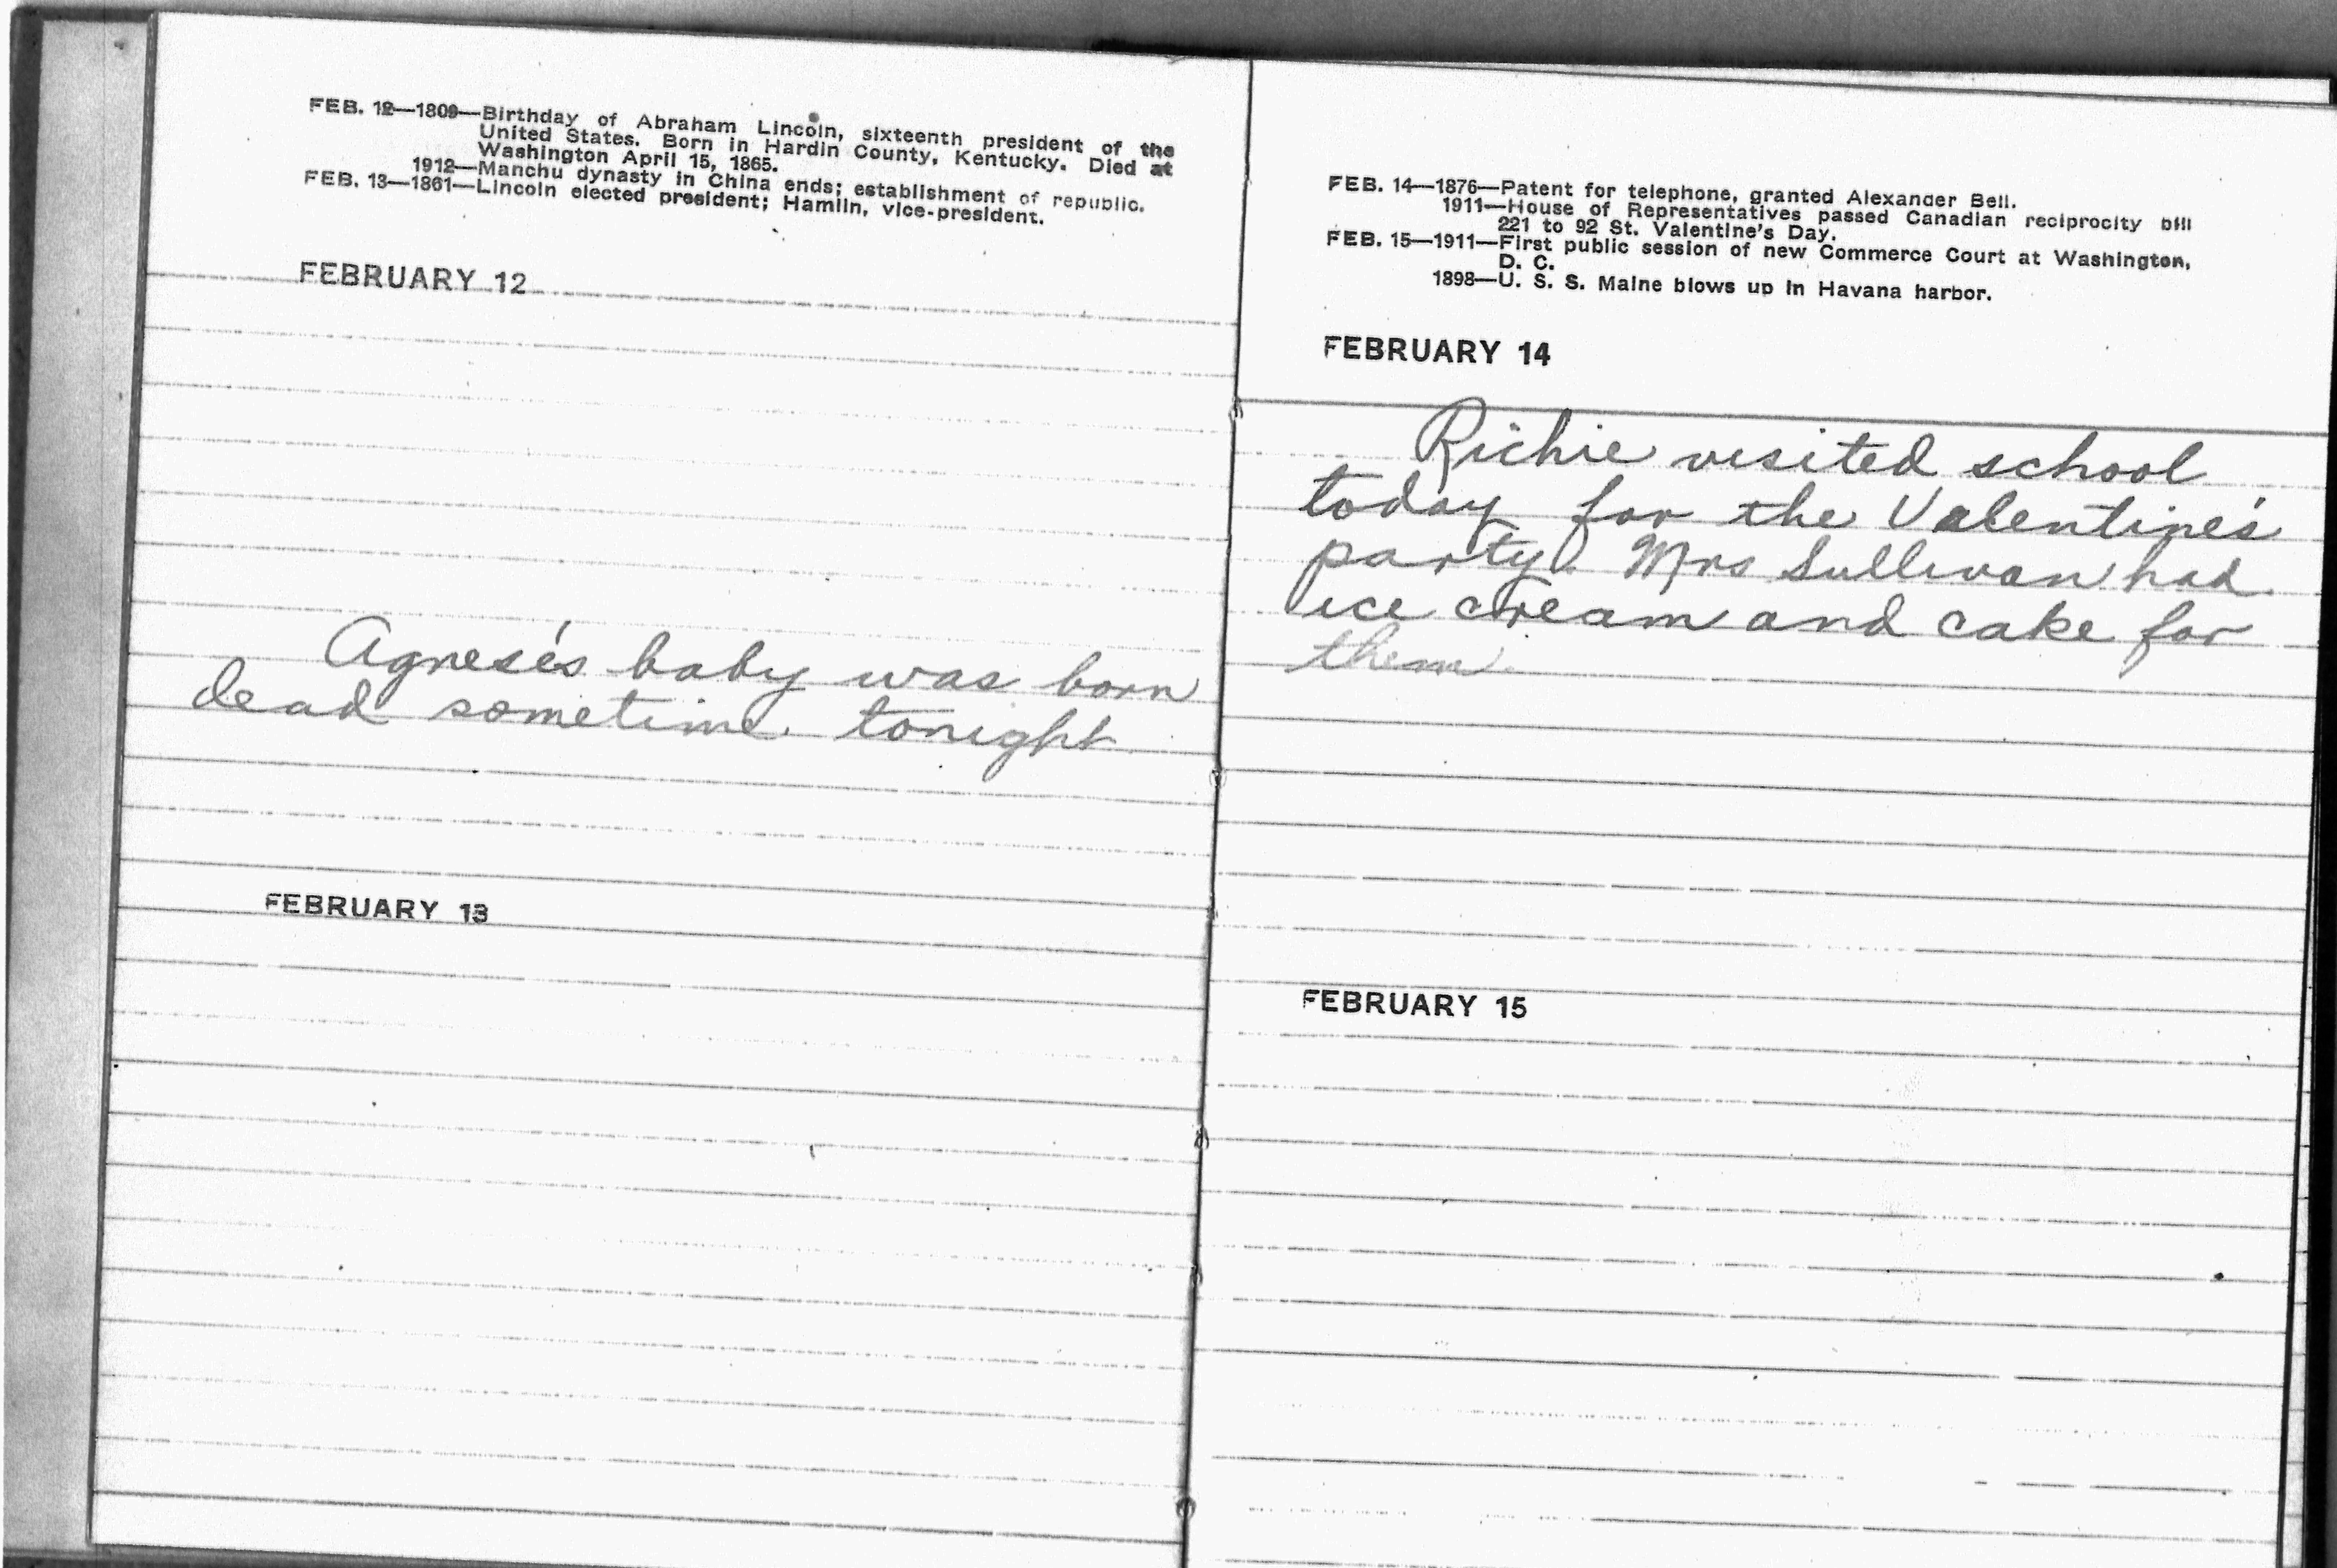 FEB. 12—1809—Birthday of Abraham Lincoln, sixteenth president of the
United States. Born in Hardin County, Kentucky. Died at
Washington April 15, 1865.
1912—Manchu dynasty in China ends; establishment of republic.
FEB. 13—1861—Lincoln elected president; Hamlin, vice-president.
FEBRUARY 12
Agnese's baby was born
dead sometime tonight
FEBRUARY 13
FEB. 14—1876—Patent for telephone, granted Alexander Bell.
1911—House of Representatives passed Canadian reciprocity bill
221 to 92 St. Valentine's Day.
FEB. 15—1911—First public session of new Commerce Court at Washington,
D. C.
1898—U. S. S. Maine blows up in Havana harbor.
FEBRUARY 14
Richie visited school
today for the Valentine's
party. Mrs Sullivan had
ice cream and cake for
them.
FEBRUARY 15